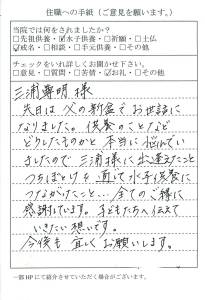 住職への手紙（ご意見を願います。）
当院では何をされましたか？
□先祖供養・☑水子供養・□祈願・□土仏
☑戒名・□相談・□手元供養・□その他
チェックをいれ詳しくお聞かせ下さい。
□意見・□質問・□苦情・☑お礼・□その他
三浦 明 様
先日は 父の新盆でお世話に
なりました。供養のことなど
どうしたものかと 本当に悩んでい
ましたので 三浦様に出逢えたこと
つちぼとけを通して水子供養に
つながけたこと… 全てのご縁に
感謝しています。子どもたちへ伝えて
いきたい想いです。
今後も 宜しくお願いします。
一部HPにて紹介させていただく場合がございます。